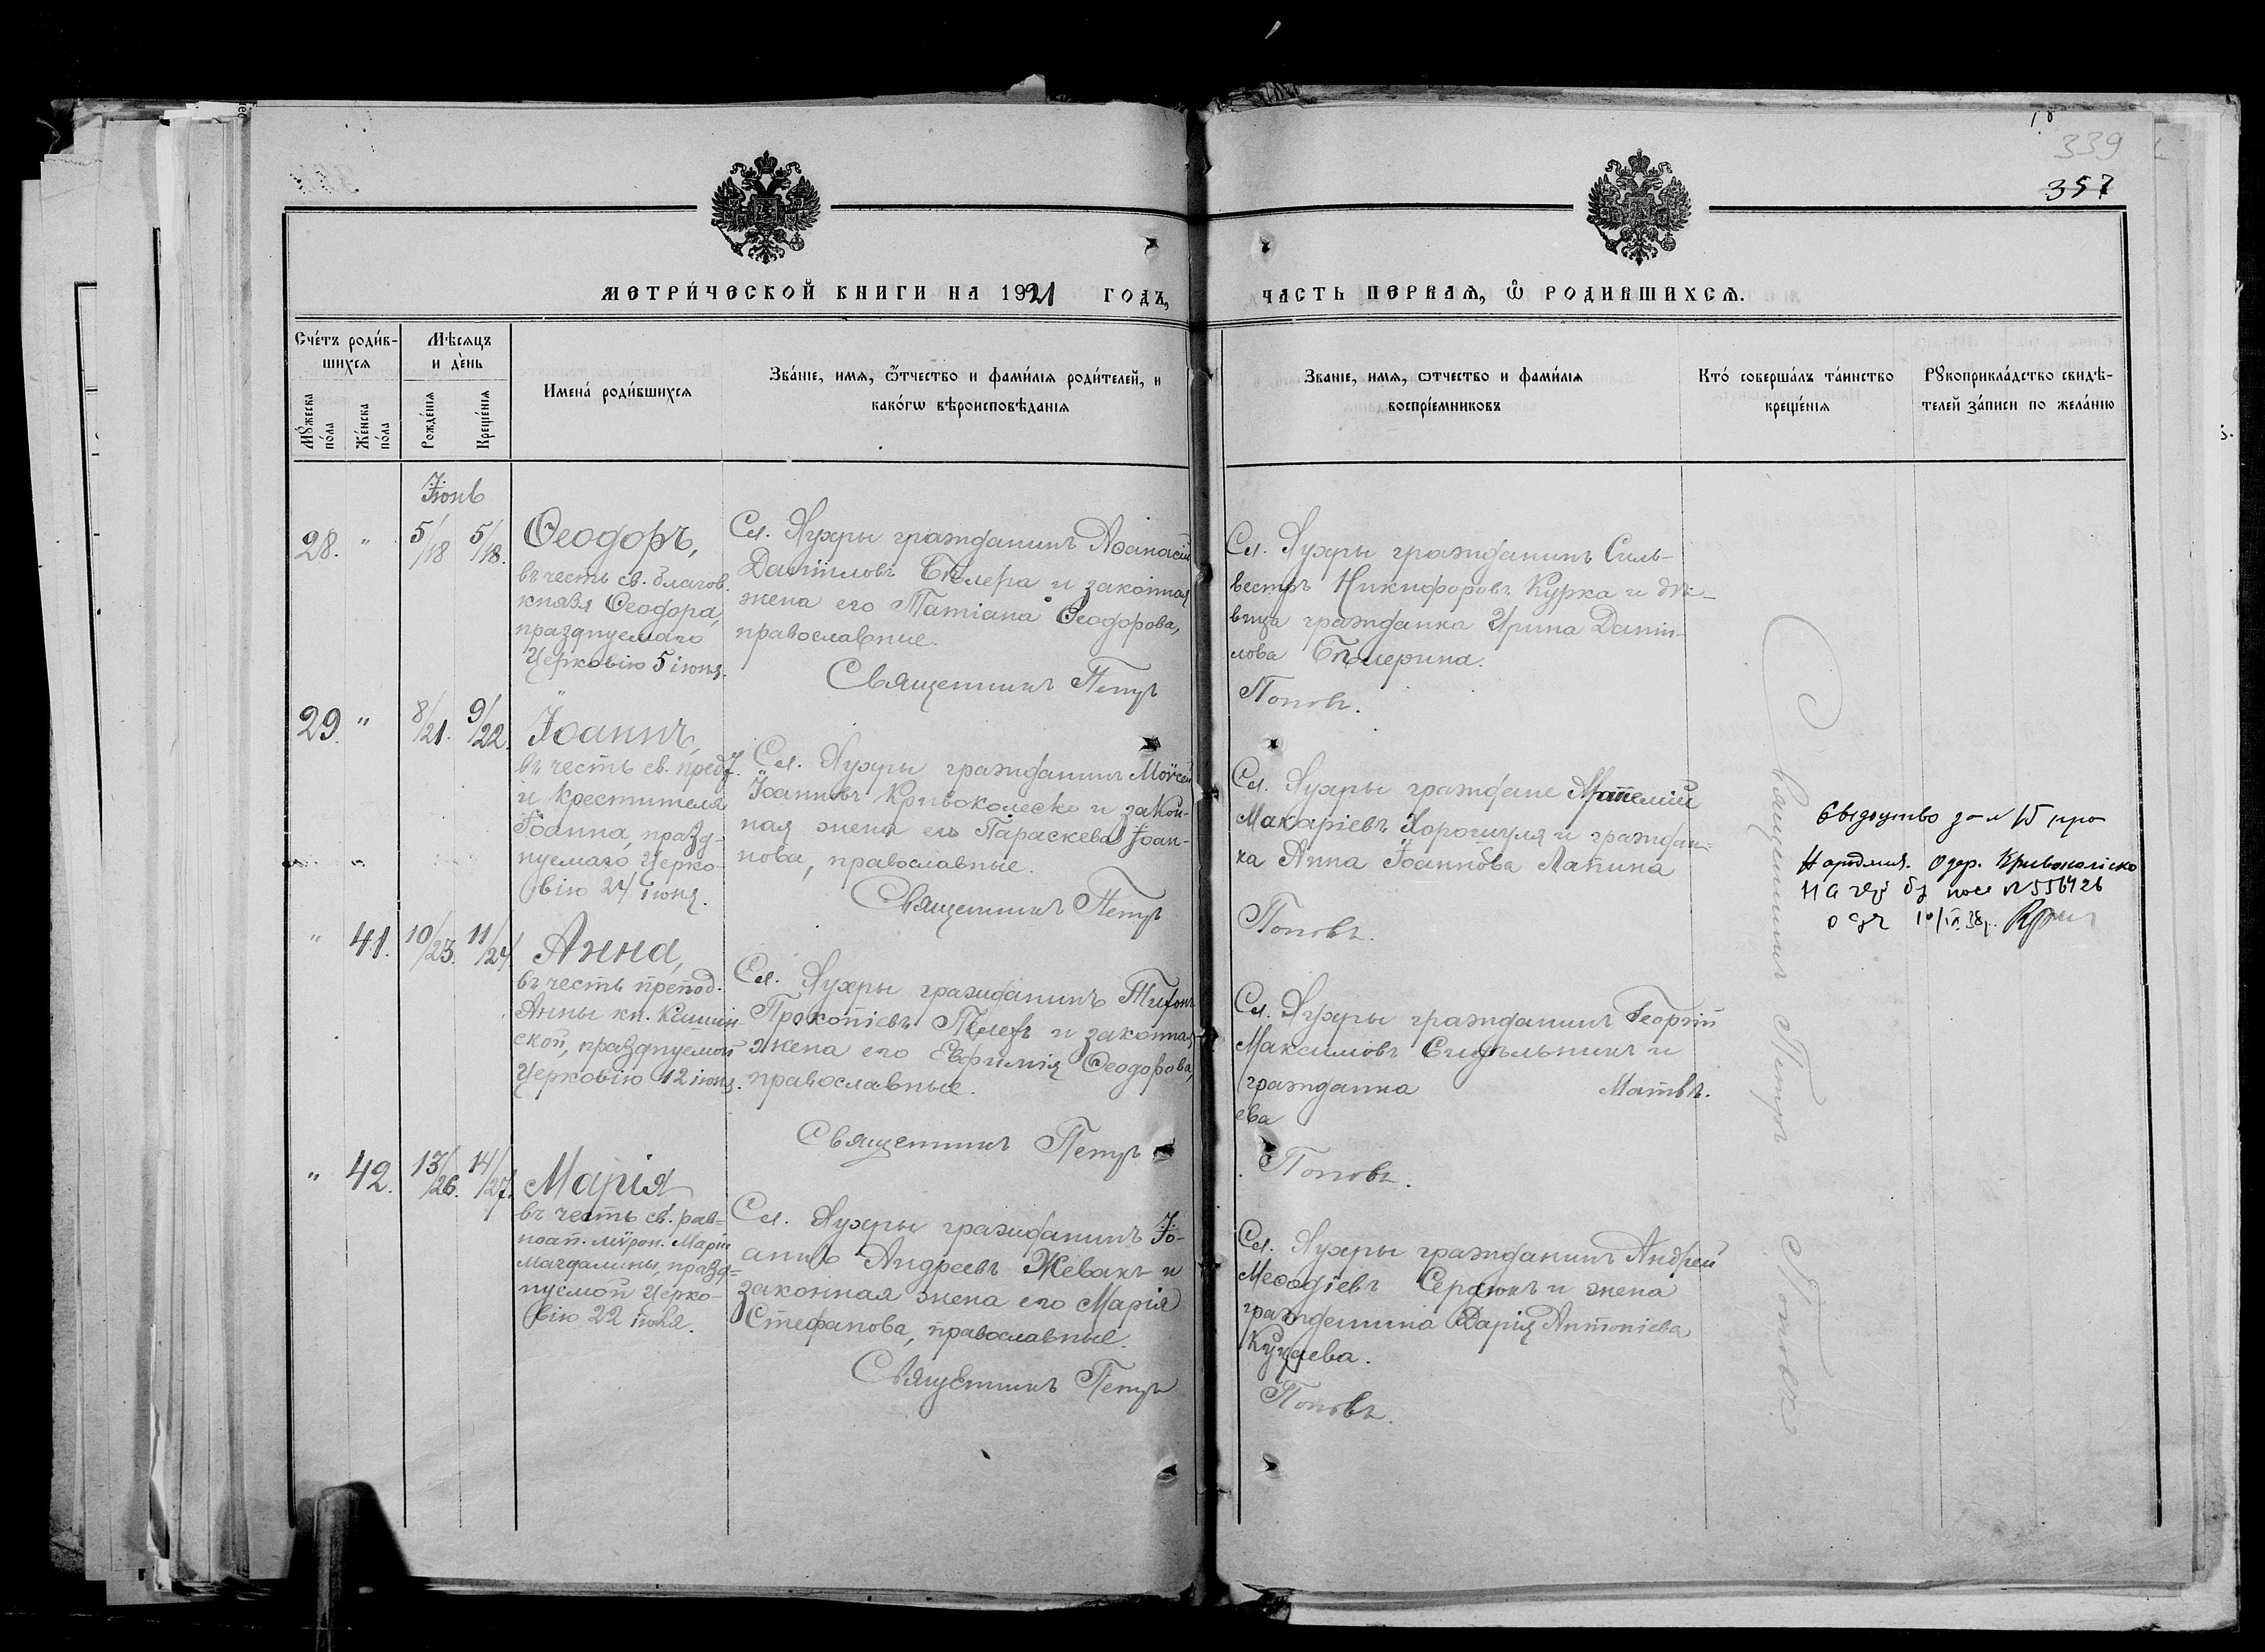 339
357
МЕТРИ́ЧЕСКОЙ КНИГИ НА 1921 ГОДЪ,
ЧАСТЬ ПЕРВАЯ, Ѽ РОДИВШИХСЯ.
Сче́тъ роди́в-
шихся
Мѣ́сяцъ
и де́нь
Мꙋ́жеска
по́ла
Же́нска
по́ла
Рожде́нїя
Креще́нїя
Имена́ роди́вшихся
Зва́нїе, имя, ѻ҆́тчество и фами́лїя роди́телей, и
како́гѡ вѣроисповѣ́данїя
Званїе, имя, ѻтчество и фами́лїя
воспрїе́мниковъ
Кто́ соверша́лъ та́инство
креще́нїя
Рꙋкоприкла́дство свидѣ́-
телей за́писи по жела́нїю
Іюнь
28. " 5/18 5/18.
Ѳеодоръ,
въ честь св. благов.
князя Ѳеодора,
празднуемаго
Церковію 5 іюня.
Сл. Яухры гражданинъ Аѳанасій
Даніиловъ Бѣлера и законная
жена его Татіана Ѳеодорова,
православные.
Священникъ Петръ
Сл. Яухры гражданинъ Силь-
вестръ Никифоровъ Курка и дѣ-
вица гражданка Ирина Дани-
лова Бѣлерина.
Поповъ.
29. " 8/21. 9/22.
Іоаннъ,
въ честь св. пред.
и Крестителя
Іоанна, празд-
нуемаго Церко-
вію 24 іюня.
Сл. Яухры гражданинъ Моѵсей
Іоанновъ Кривоколеско и закон-
ная жена его Параскева Іоан-
нова, православные.
Священникъ Петръ
Сл. Яухры граждане
Макаріевъ и граждан-
ка Анна Іоаннова Лапина
Поповъ.
" 41. 10/23. 11/24
Анна,
въ честь препод.
Анны кн. Кашин-
ской, празднуемой
Церковію 12 іюня.
Сл. Яухры гражданинъ
Прокопіевъ и законная
жена его Евфимія Ѳеодорова,
православные.
Священникъ Петръ
Сл. Яухры гражданинъ Георгій
Максимовъ Сидѣльникъ и
гражданка Матвѣ-
ева
Поповъ.
" 42. 13/26. 14/27.
Марія
въ честь св. рав-
ноап. мѵрон. Маріи
Магдалины, празд-
нуемой Церко-
вію 22 іюля.
Сл. Яухры гражданинъ Іо-
аннъ Андреевъ Жевакъ и
законная жена его Марія
Стефанова, православные.
Священникъ Петръ
Сл. Яухры гражданинъ Андрей
Меѳодіевъ Сердюкъ и жена
гражданина Дарія Антоніева
Поповъ.
Священникъ Петръ Поповъ
про
одер. Кривоколіско